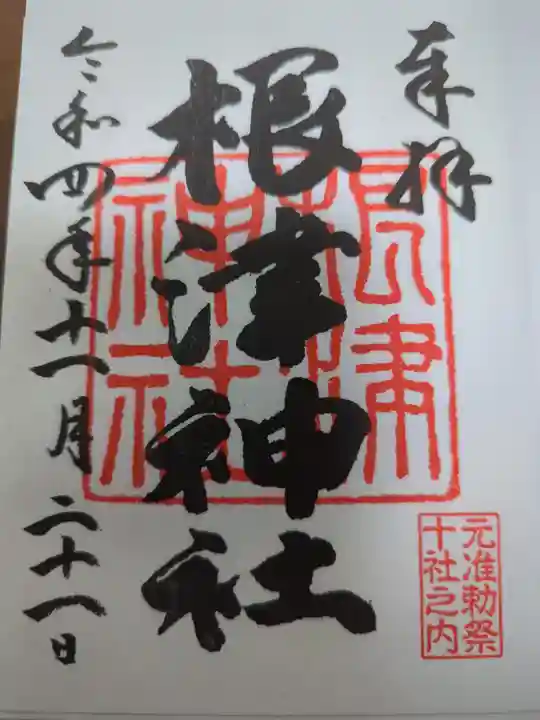 奉拝
根津神社
根津神社
元准勅祭
十社之内
令和四年十一月二十一日